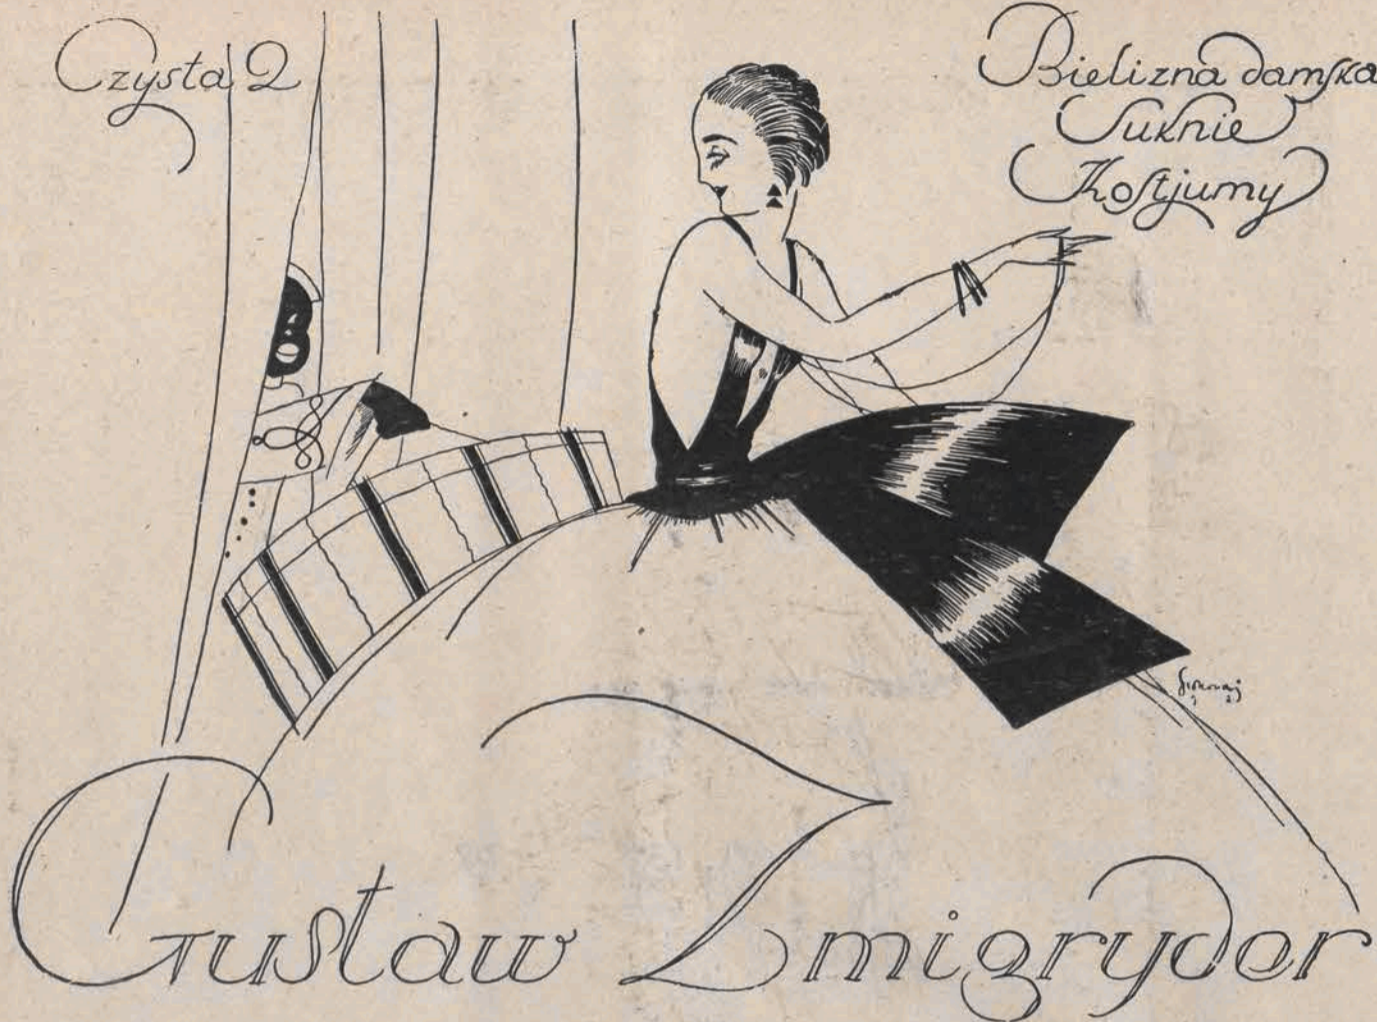 Czysta 2
Bielizna damska
Suknie
Kostjumy
Gustaw Zmigryder